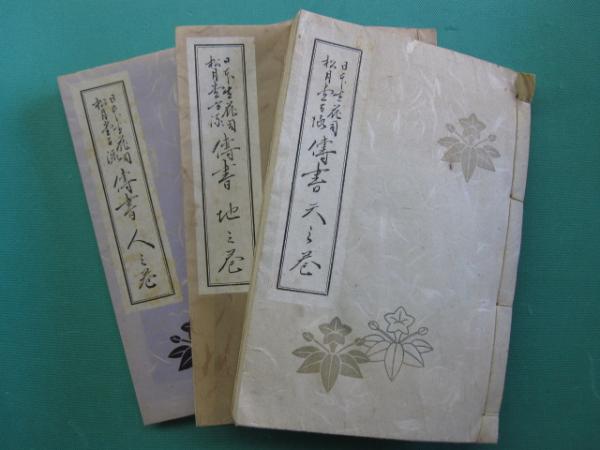 日本生花司
松月堂古流
傳書 人之巻
日本生花司
松月堂古流
傳書 地之巻
日本生花司
松月堂古流
傳書 天之巻